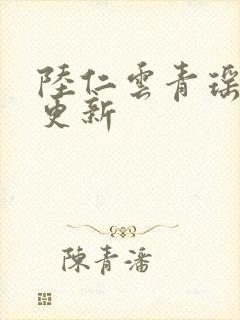 陸仁雲青瑶
更新
陳青潘